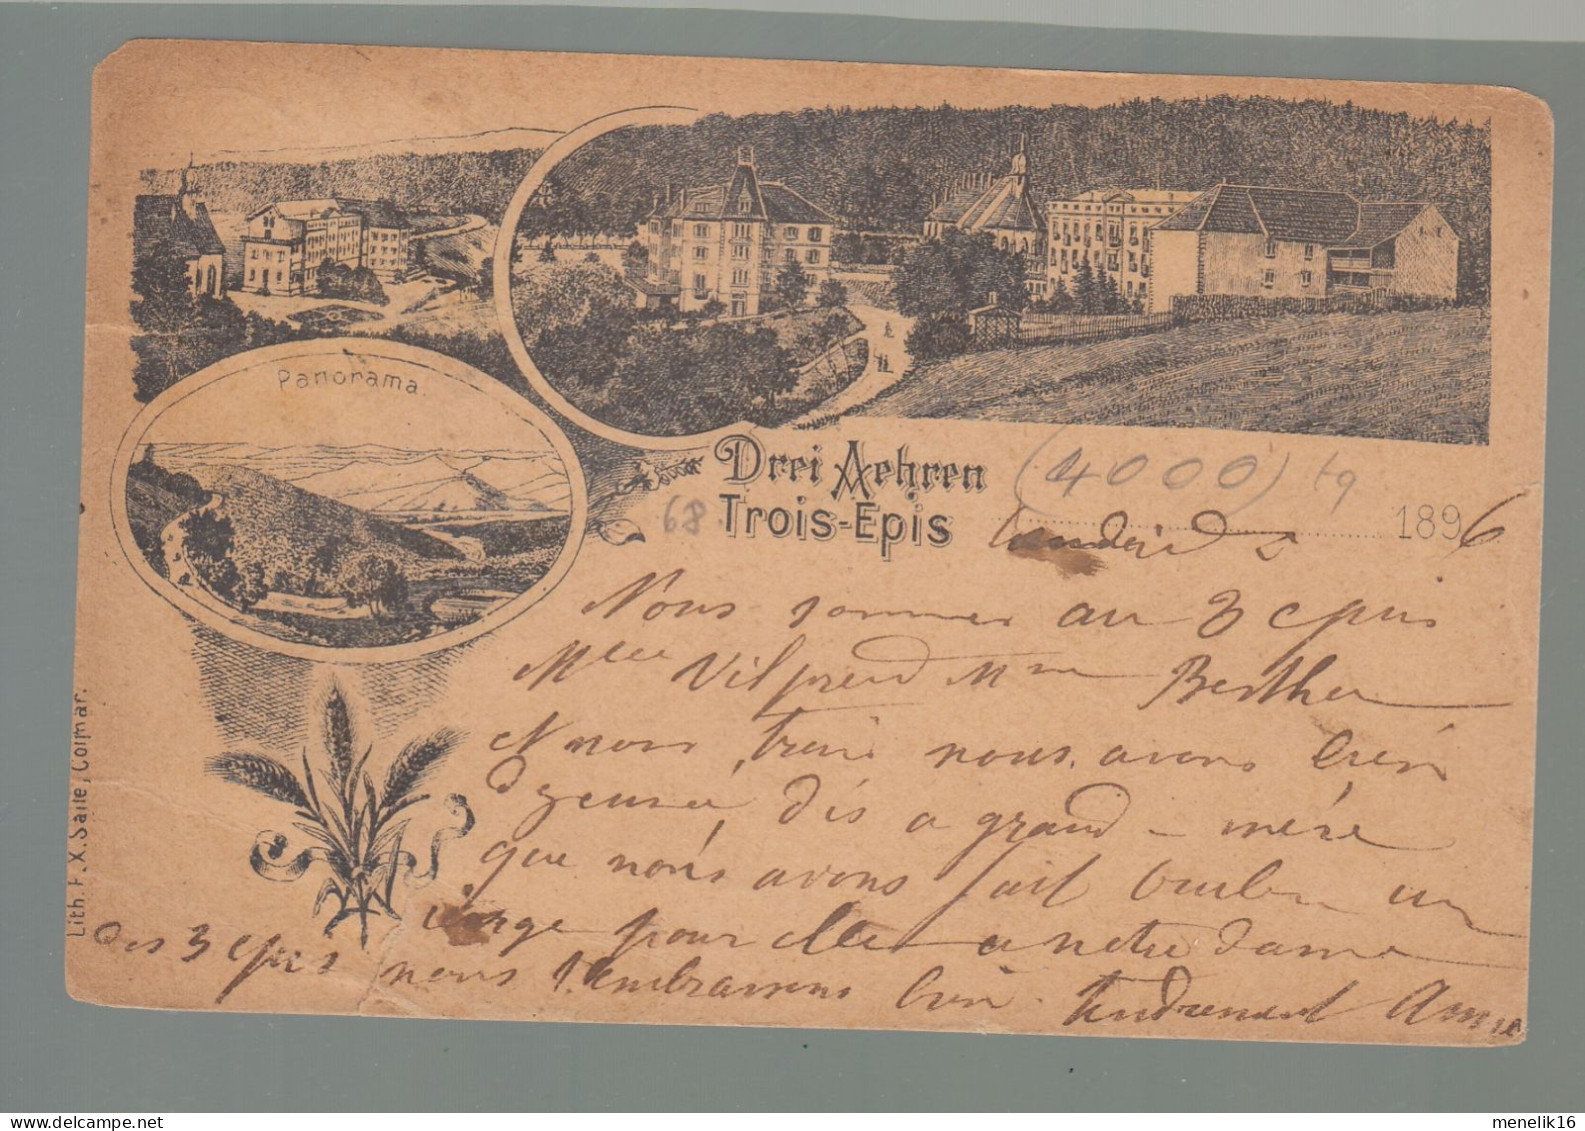 Panorama
Drei Aehren
(4000) tg
68.
Trois-Epis
Vendredi 2 1896
Nous sommes au 3 epis
Melle Vilpred Mme Berthe
et nous trois nous avons bien
dejeuné, dis a grand-mére
que nous avons fait bruler un
cierge pour elle a notre dame
des 3 epis nous t'embrassons bien tendrement Anna
Lith. F. X. Saile, Colmar.
menelik16